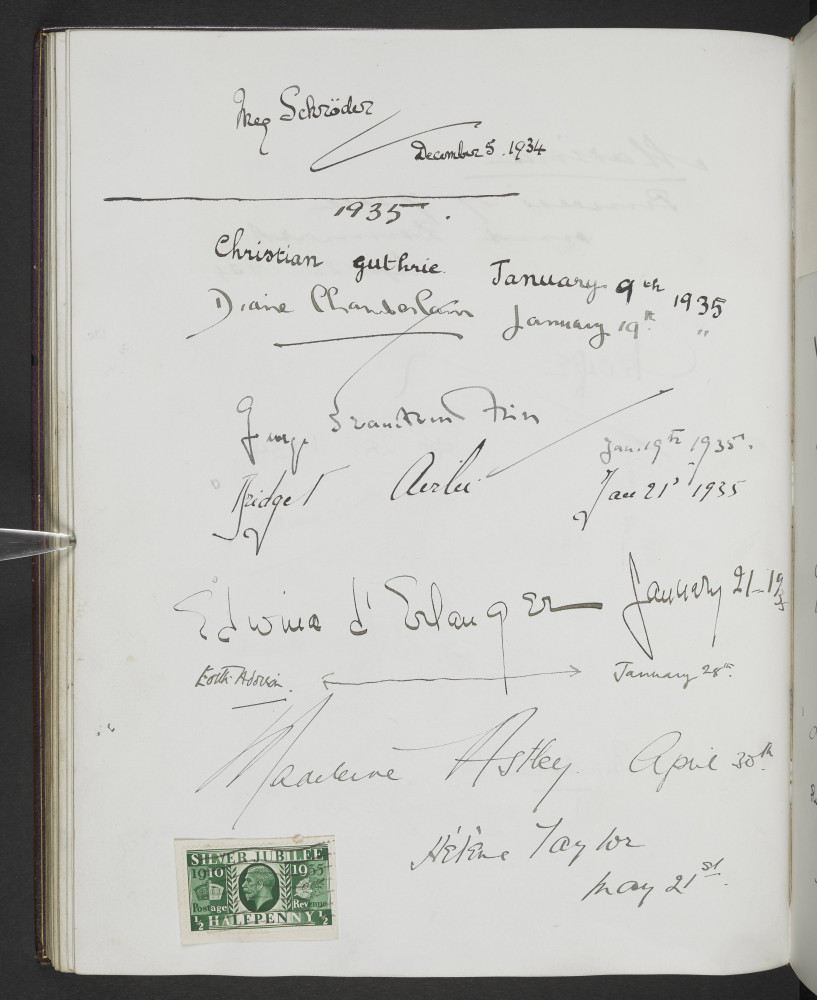 Meg Schröder
December 5. 1934
1935.
Christian Guthrie. January 9th 1935
Diane Chamberlain January 19th "
George
Jan. 19th 1935.
Bridget Airlie Jan 21st 1935
Edwina d'Erlanger January 21-1935
January 28th.
Madeleine Astley. April 30th
Hélène Taylor
May 21st.
SILVER JUBILEE
1910 1935
Postage Revenue
½ HALFPENNY ½